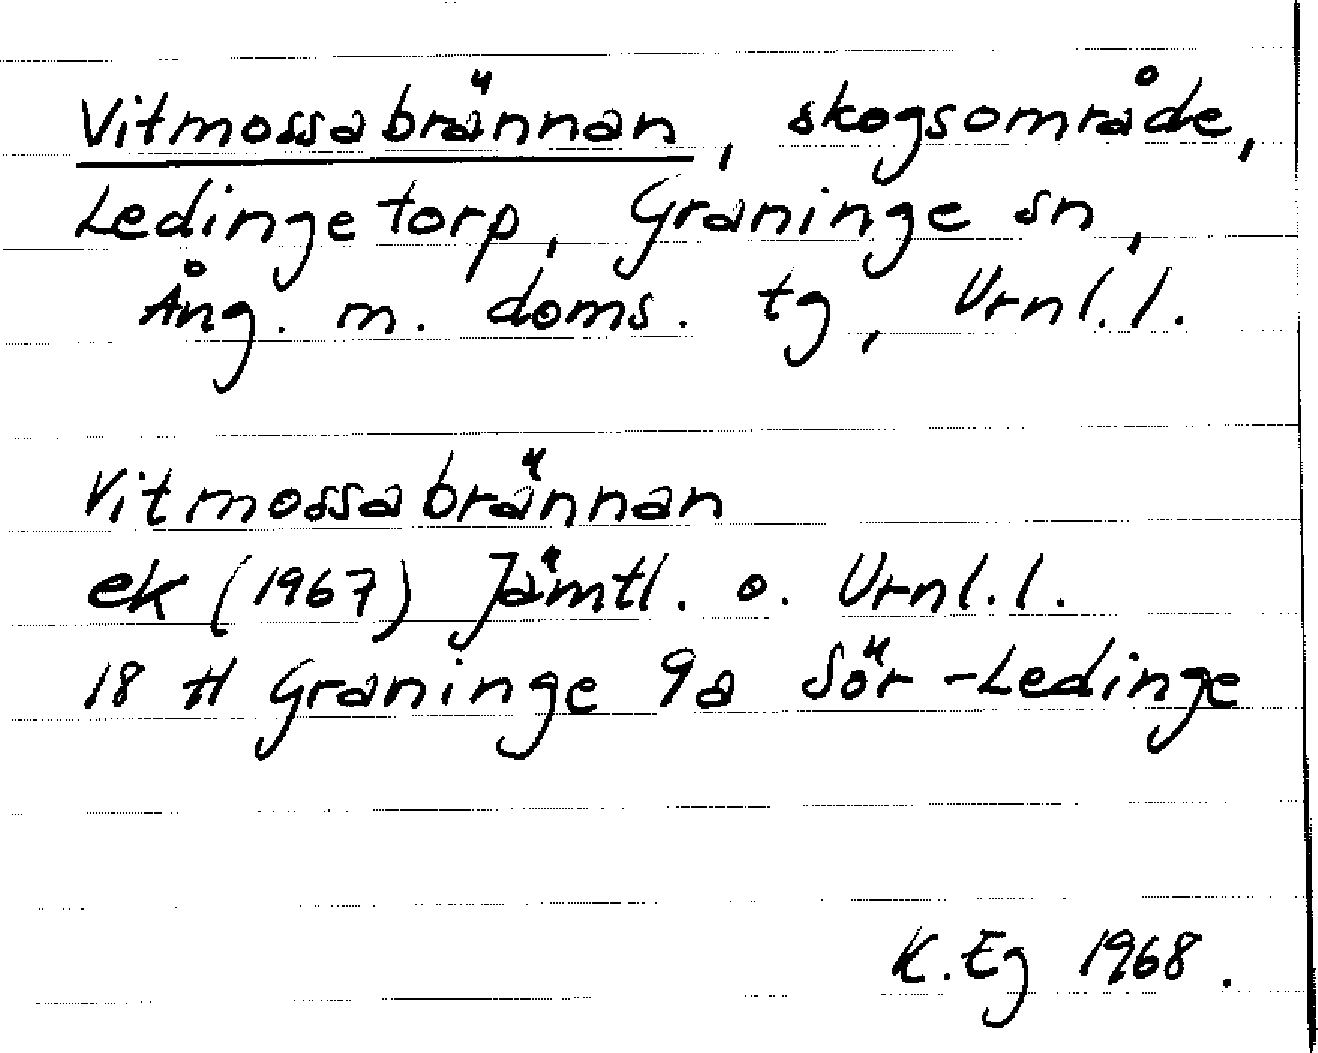 Vitmossabrännan, skogsområde,
Ledingetorp, Graninge sn,
Ång. m. doms. tg, Vrnl.l.
Vitmossabrännan
ek (1967) Jämtl. o. Vrnl.l.
18 H Graninge 9a Sör-Ledinge
K.Eg 1968.